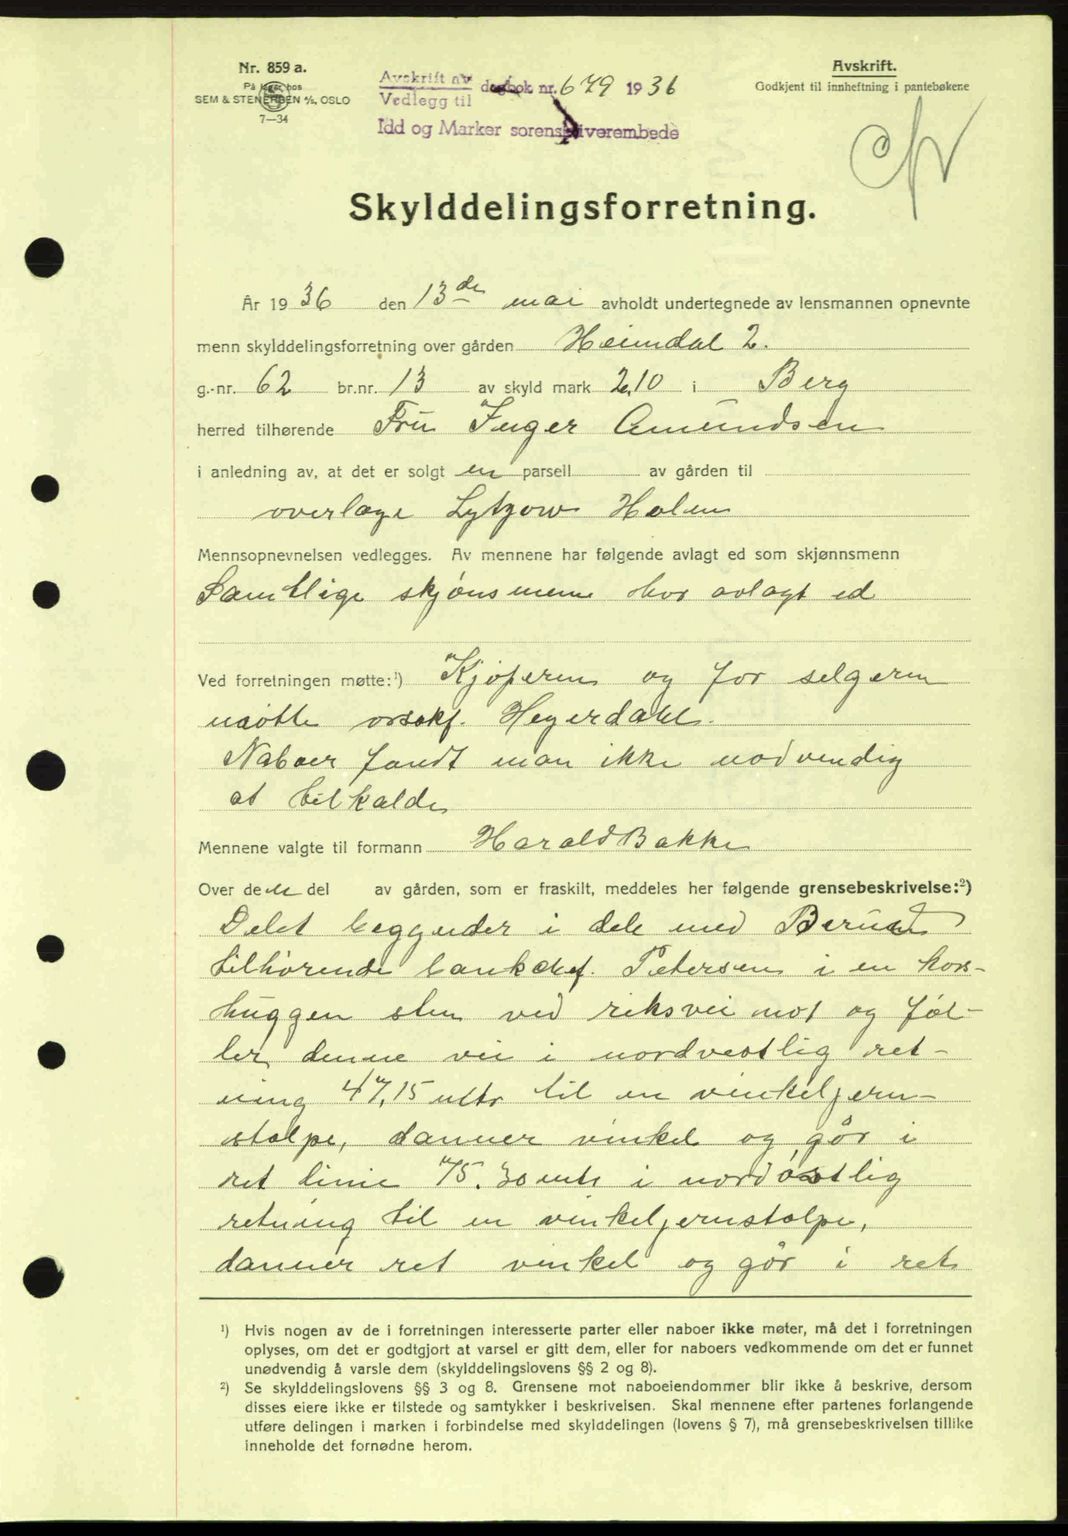 Nr. 859 a.
På lager hos
SEM & STENERSEN A/S, OSLO
7—34
Avskrift av
Vedlegg til
dagbok nr. 679 1936
Idd og Marker sorenskriverembede
Avskrift.
Godkjent til innheftning i pantebøkene
Skylddelingsforretning.
År 1936 den 13de mai avholdt undertegnede av lensmannen opnevnte
menn skylddelingsforretning over gården Heimdal 2.
g.-nr. 62 br.nr. 13 av skyld mark 2,10 i Berg
herred tilhørende Fru Inger Amundsen
i anledning av, at det er solgt en parsell av gården til
overlæge Lytzow Holm
Mennsopnevnelsen vedlegges. Av mennene har følgende avlagt ed som skjønnsmenn
Samtlige skjønsmenn har avlagt ed
Ved forretningen møtte:¹) Kjøperen og for selgeren
møtte orsakf. Heyerdahl.
Naboer fandt man ikke nødvendig
at tilkalde
Mennene valgte til formann Harald Bakke
Over de del av gården, som er fraskilt, meddeles her følgende grensebeskrivelse:²)
Delet begynder i dele med
tilhørende bankchef. Petersen i en kors-
huggen sten ved riksvei no1 og føl-
ler denne vei i nordvestlig ret-
ning 47,15 mtr til en vinkeljern-
stolpe, danner vinkel og går i
ret linie 75.30 mtr i nordøstlig
retning til en vinkeljernstolpe,
danner ret vinkel og går i ret
¹) Hvis nogen av de i forretningen interesserte parter eller naboer ikke møter, må det i forretningen
oplyses, om det er godtgjort at varsel er gitt dem, eller for naboers vedkommende om det er funnet
unødvendig å varsle dem (skylddelingslovens §§ 2 og 8).
²) Se skylddelingslovens §§ 3 og 8. Grensene mot naboeiendommer blir ikke å beskrive, dersom
disses eiere ikke er tilstede og samtykker i beskrivelsen. Skal mennene efter partenes forlangende
utføre delingen i marken i forbindelse med skylddelingen (lovens § 7), må grensebeskrivelsen tillike
inneholde det fornødne herom.